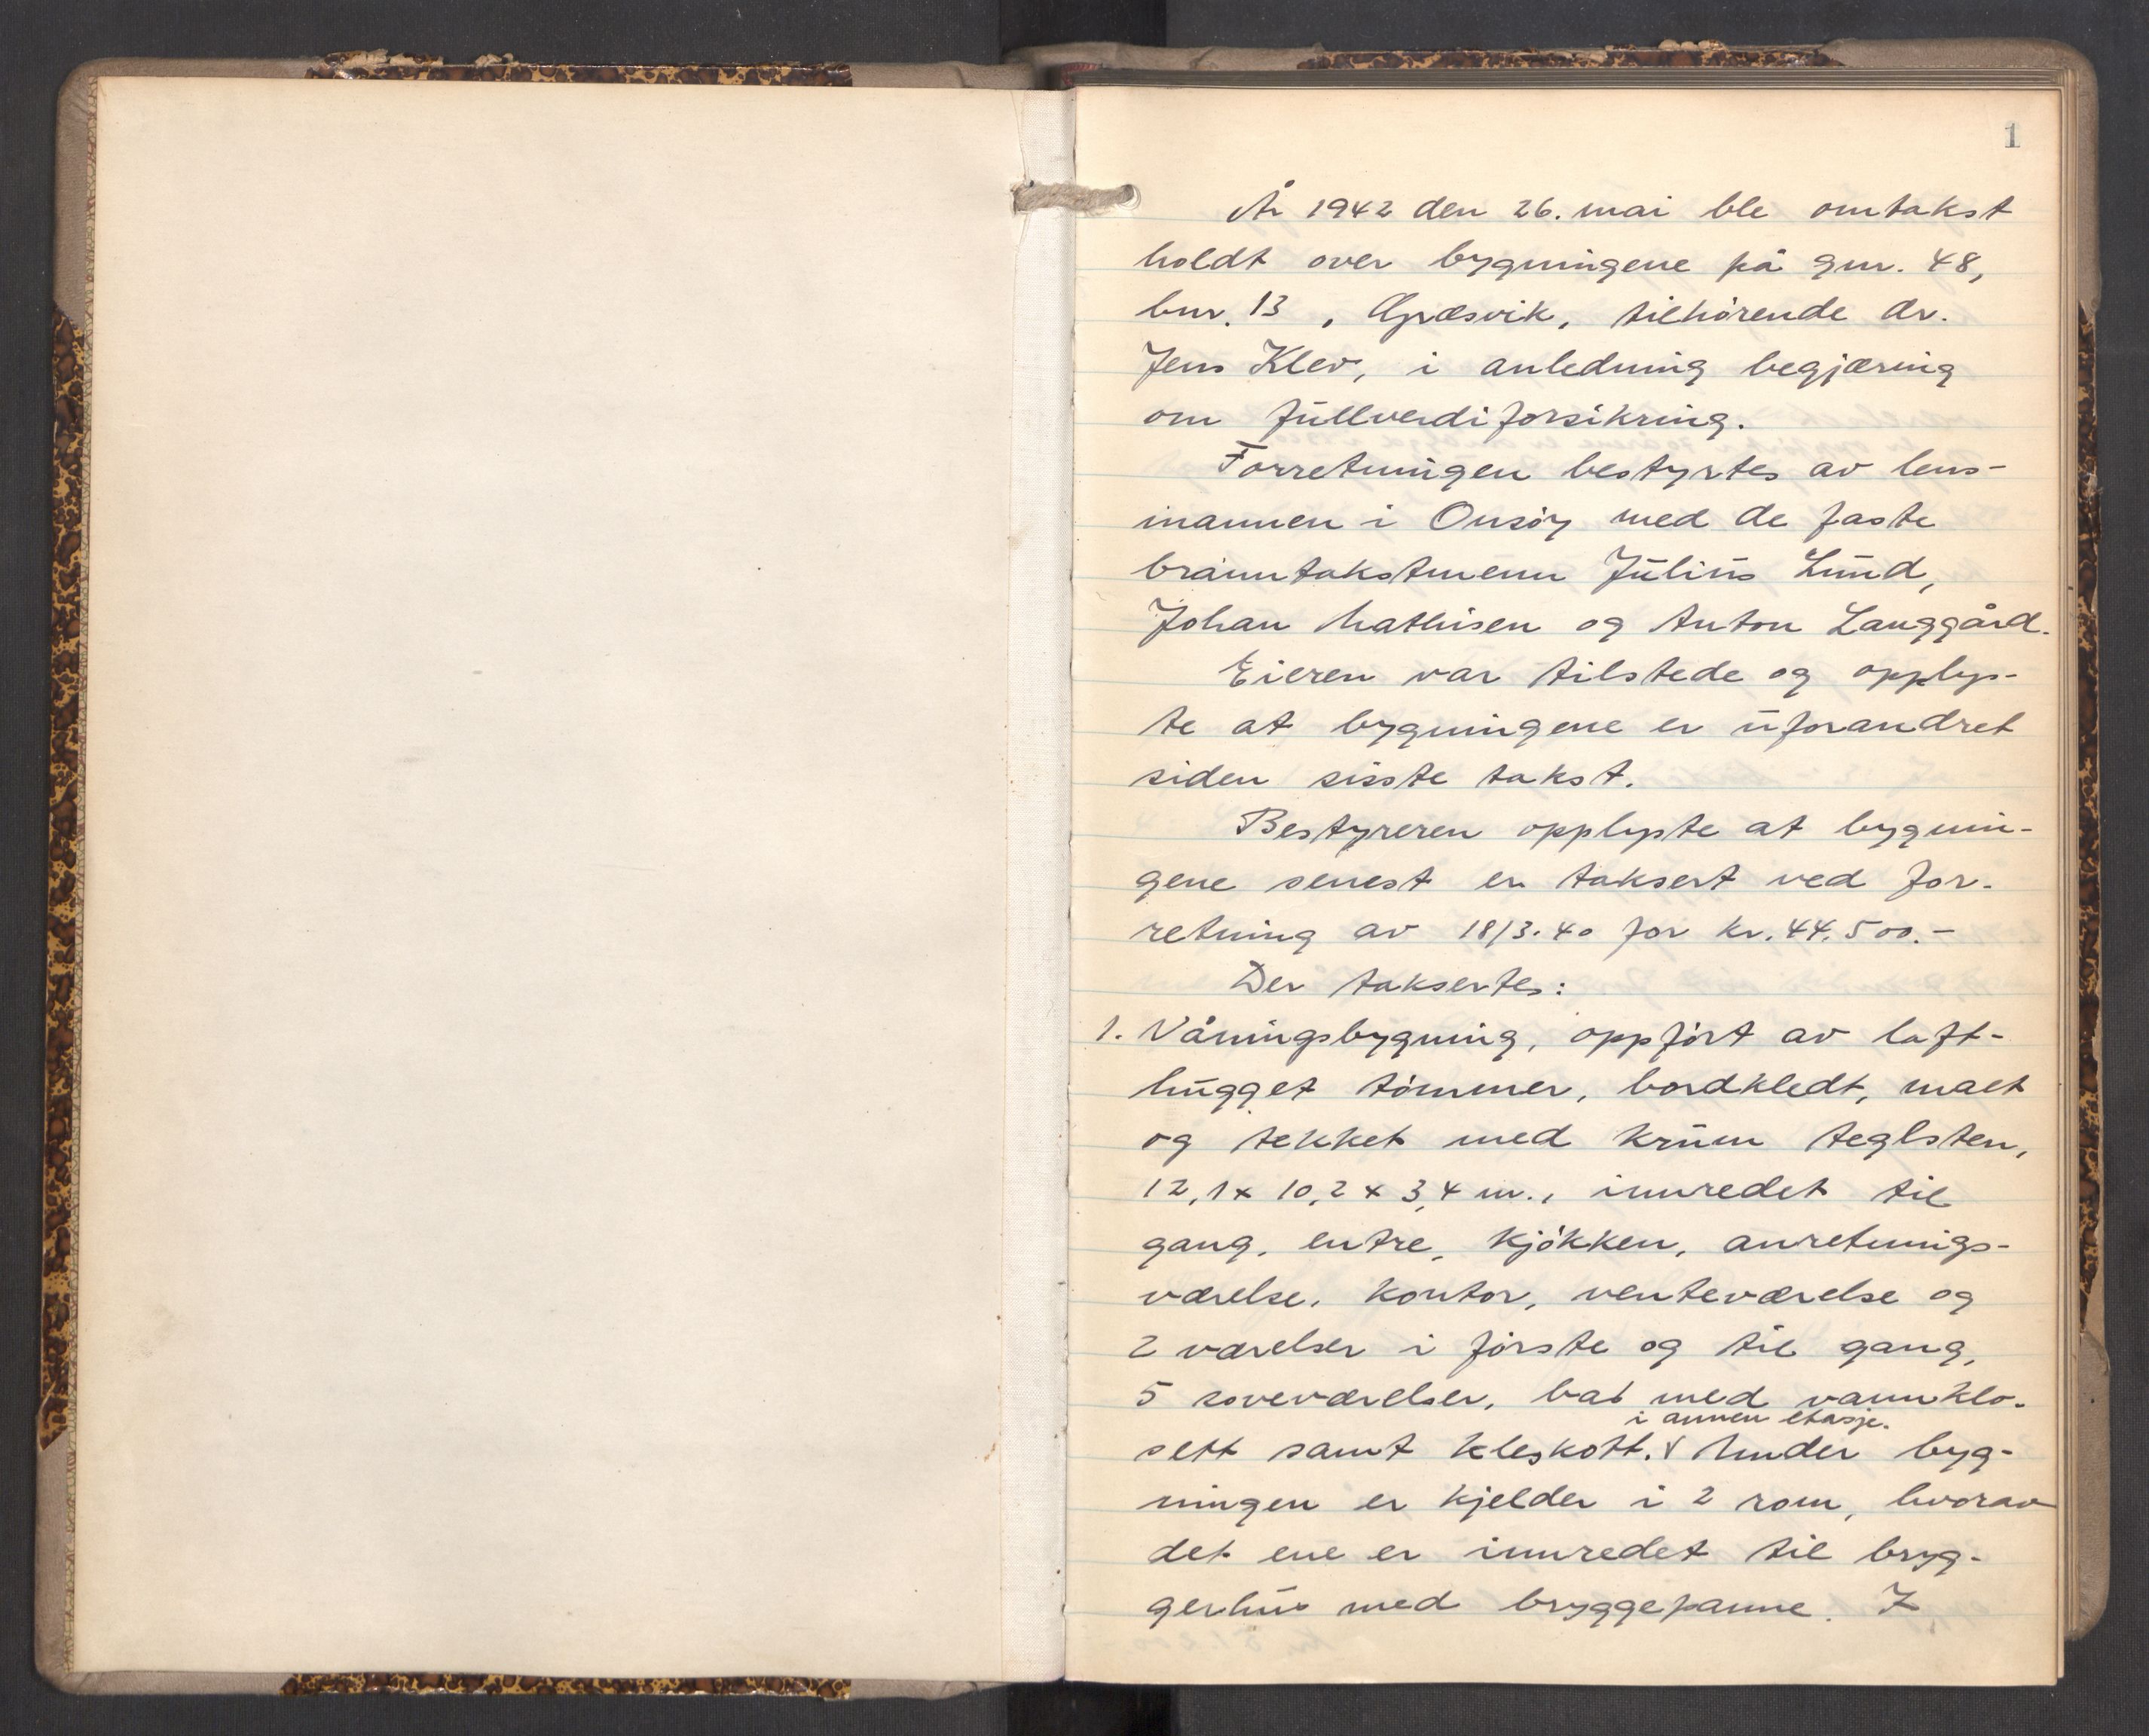 1
År 1942 den 26. mai ble omtakst
holdt over bygningene på gnr. 48,
bnr. 13, Græsvik, tilhørende dr.
Jens Klev, i anledning begjæring
om fullverdiforsikring.
Forretningen bestyrtes av lens-
mannen i Onsøy med de faste
branntakstmenn Julius Lund,
Johan Mathisen og Anton Langgård.
Eieren var tilstede og opplys-
te at bygningene er uforandret
siden sisste takst.
Bestyreren opplyste at bygnin-
gene senest er taksert ved for-
retning av 18/3.40 for kr. 44.500.-
Der taksertes:
1. Våningsbygning, oppført av laft-
hugget tømmer, bordkledt, malt
og tekket med krum teglsten,
12,1 x 10,2 x 3,4 m., innredet til
gang, entre, kjøkken, anretnings-
værelse, kontor, venteværelse og
2 værelser i første og til gang,
5 soveværelser, bad med vannklo-
i annen etasje.
sett samt kleskott. V Under byg-
ningen er kjelder i 2 rom, hvorav
det ene er innredet til bryg-
gerhus med bryggepanne. I